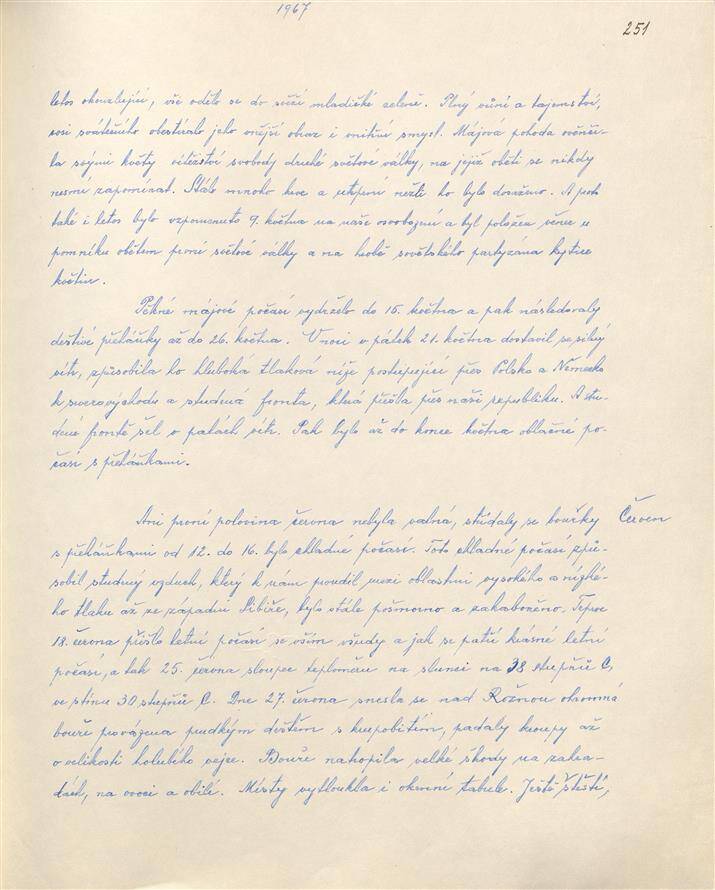 1967
251
letos okouzlující, vše odělo se do svěží mladičké zeleně. Plný vůní a tajemství,
cosi svátečního obestíralo jeho vnější obraz i vnitřní smysl. Májová pohoda ověnči-
la svými květy vítězství svobody druhé světové války, na jejíž oběti se nikdy
nesmí zapomínat. Stálo mnoho krve a utrpení nežli ho bylo dosaženo. A proto
také i letos bylo vzpomenuto 9. května na naše osvobození a byl položen věnec u
pomníku obětem první světové války a na hrobě sovětského partyzána kytice
květin.
Pěkné májové počasí vydrželo do 15. května a pak následovaly
deštivé přeháňky až do 26. května. V noci v pátek 21. května dostavil se silný
vítr, způsobila ho hluboká tlaková níže postupující přes Polsko a Německo
k severovýchodu a studená fronta, která přešla přes naši republiku. A stu-
dené frontě šel v patách vítr. Pak bylo až do konce května oblačné po-
časí s přeháňkami.
Ani první polovina června nebyla valná, střídaly se bouřky
Červen
s přeháňkami od 12. do 16. bylo chladné počasí. Toto chladné počasí způ-
sobil studený vzduch, který k nám proudil mezi oblastmi vysokého a nízké-
ho tlaku až ze západní Sibiře, bylo stále pošmourno a zakaboněno. Teprve
18. června přišlo letní počasí se vším všudy a jak se patří krásné letní
počasí, a tak 25. června sloupec teploměru na slunci na 38 stupňů C,
ve stínu 30 stupňů C. Dne 27. června snesla se nad Rožnou ohromná
bouře provázena prudkým deštěm s krupobitím, padaly kroupy až
o velikosti holubího vejce. Bouře natropila velké škody na zahra-
dách, na ovoci a obilí. Místy vytloukla i okenní tabule. Ještě štěstí,